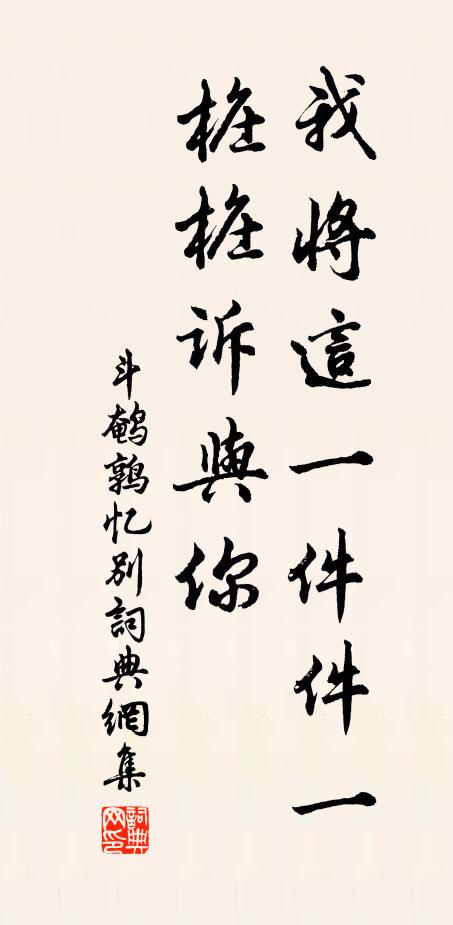 我將這一件件一
樁樁訴與你
斗鹌鹑忆别詞典網集
詞典网印